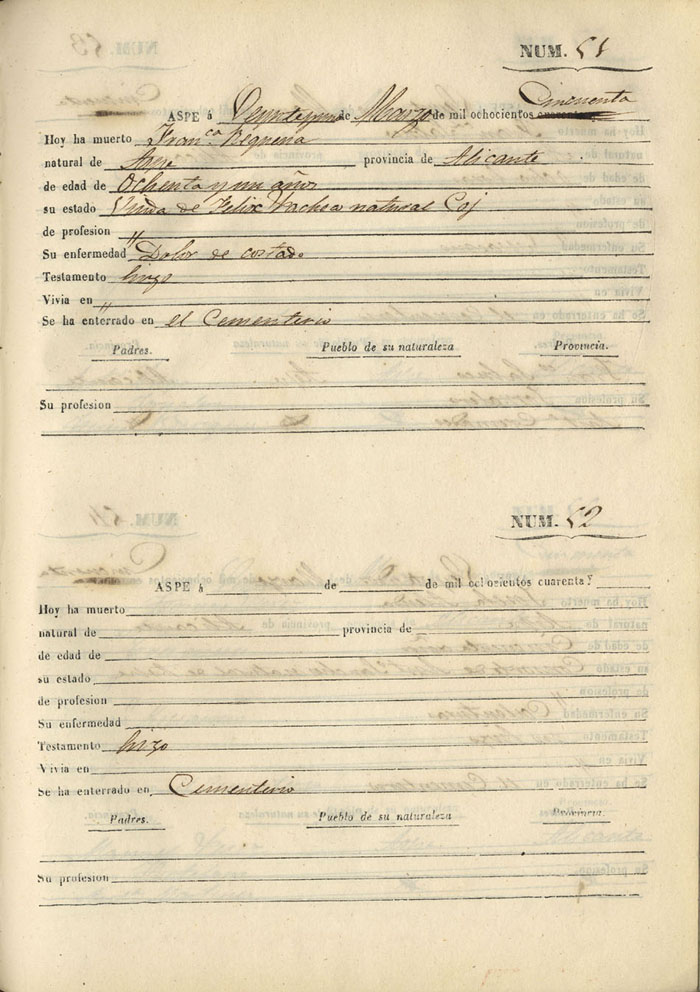 NUM. 51
Cincuenta
ASPE á Veinteyuno de Marzo de mil ochocientos cuarenta
Hoy ha muerto Fran.ca Requena
natural de Aspe provincia de Alicante
de edad de Ochenta y un años
su estado Viuda de Felix natural
de profesion "
Su enfermedad Dolor de costado
Testamento hizo
Vivia en "
Se ha enterrado en el Cementerio
Padres. Pueblo de su naturaleza Provincia.
Su profesion
NUM. 52
ASPE á de de mil ochosientos cuarenta y
Hoy ha muerto
natural de provincia de
de edad de
su estado
de profesion
Su enfermedad
Testamento hizo
Vivia en
Se ha enterrado en Cementerio
Padres. Pueblo de su naturaleza Provincia.
Su profesion